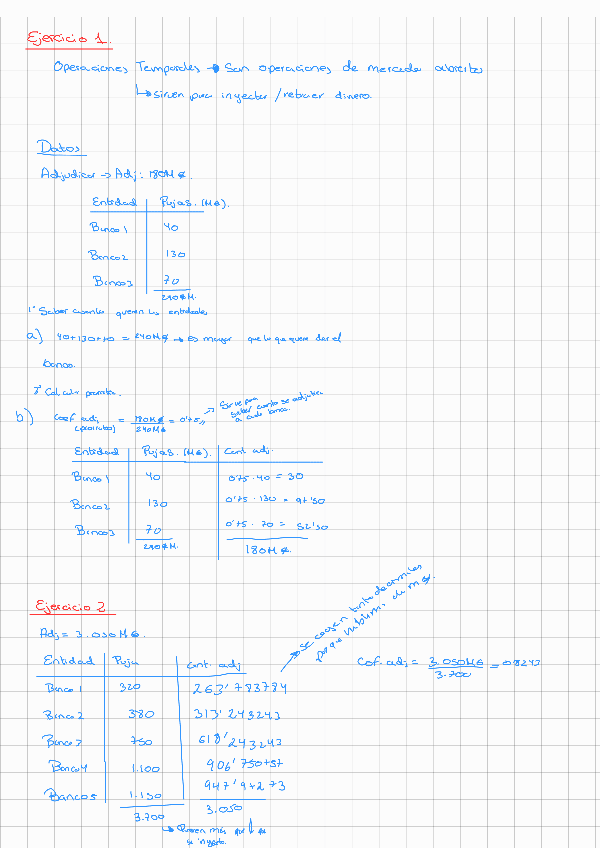 Ejercicio 1.
Operaciones Temporales → Son operaciones de mercado abiertas
↳ sirven para inyectar / retraer dinero.
Datos
Adjudicar → Adj: 180M€.
Entidad Pujas. (M€).
Banco 1 40
Banco 2 130
Banco 3 70
240€M.
1º Saber cuanto quieren las entidades
a) 40+130+70 = 240M€ → Es mayor que lo que quiere dar el
banco.
2º Calcular prorrata.
b) Coef. adj (prorrateo) = 180M€ / 240M€ = 0'75,, → Sirve para saber cuanto se adjudica a cada banco.
Entidad Pujas. (M€). Cant. adj.
Banco 1 40 0'75 · 40 = 30
Banco 2 130 0'75 · 130 = 97'50
Banco 3 70 0'75 · 70 = 52'50
240€M. 180M€.
Ejercicio 2
Adj = 3.050M€.
→ se cogen tantos decimales
porque hablamos de m €.
Entidad Puja Cant. adj Cof. adj = 3.050M€ / 3.700 = 0'8243
Banco 1 320 263'783784
Banco 2 380 313'243243
Banco 3 750 618'243243
Banco 4 1.100 906'750757
Banco 5 1.150 947'942273
3.700 3.050
↳ Quieren más que lo que
se inyecta.